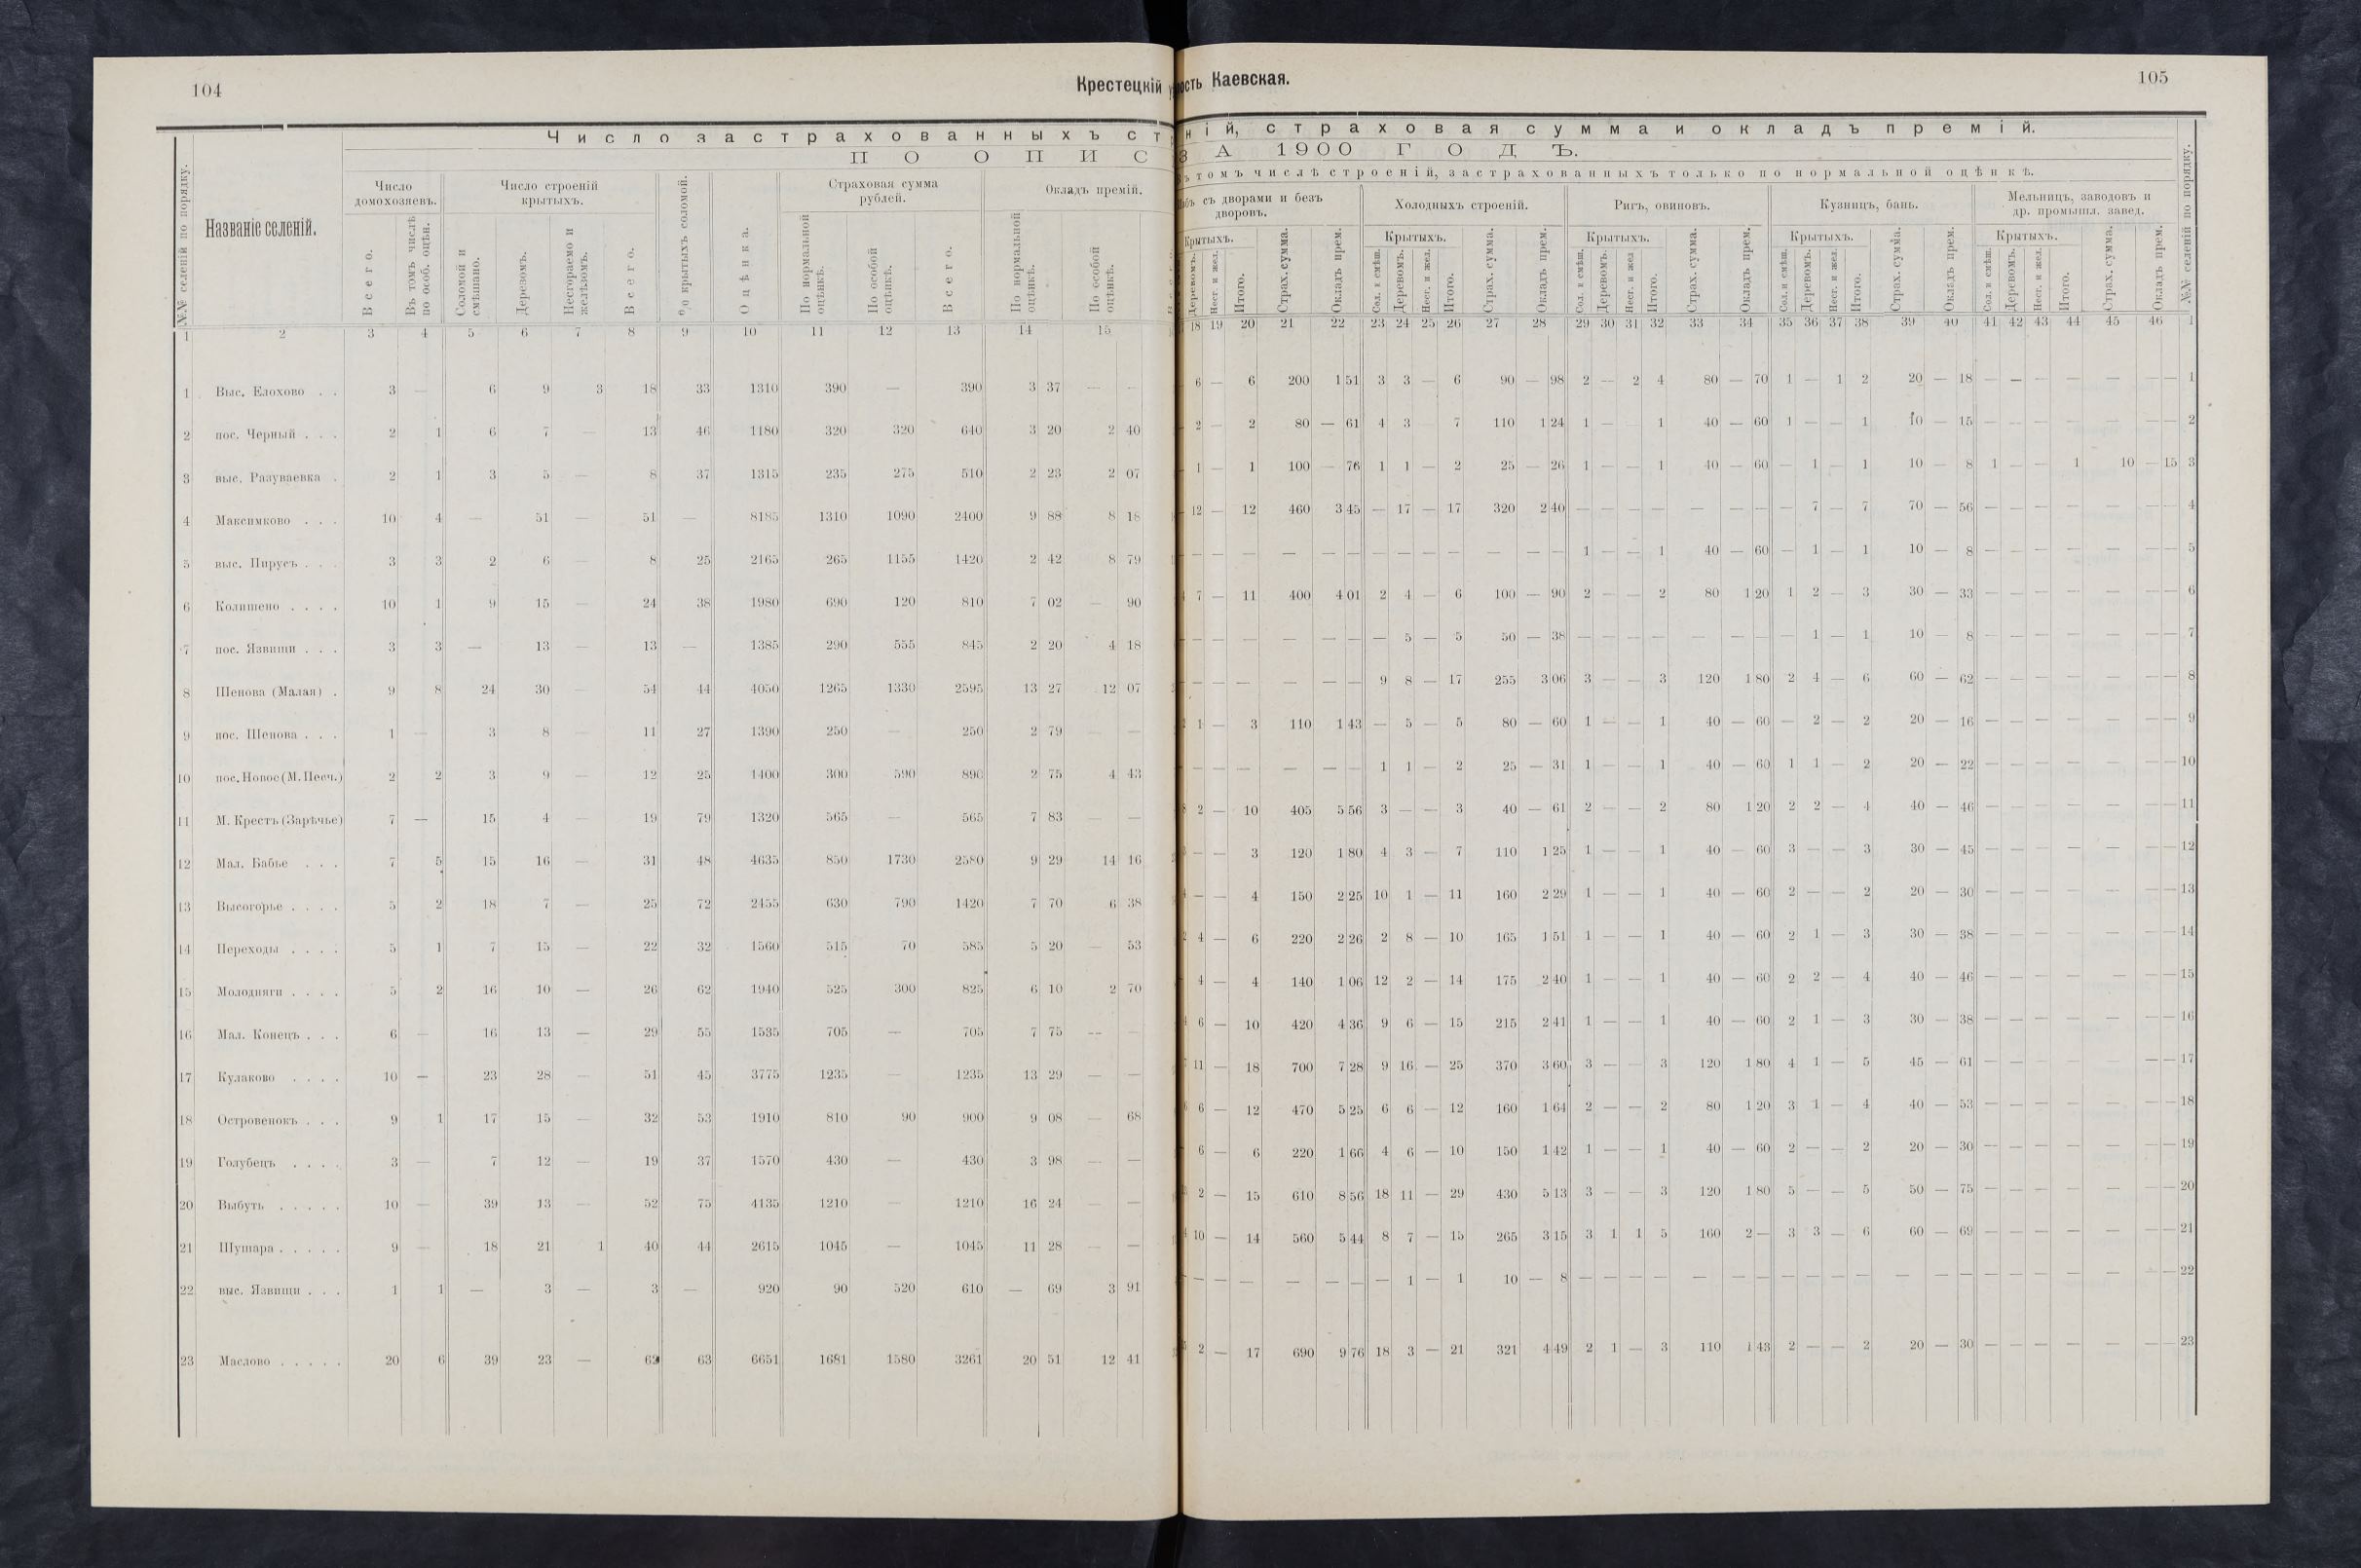 104
Крестецкій
ость Каевская.
105
Число застрахованныхъ ст
ній, страховая сумма и окладъ премій.
ПО ОПИС
ЗА 1900 ГОДЪ.
томъ числѣ строеній, застрахованныхъ только по нормальной оцѣнкѣ.
№№ селеній по порядку.
Названіе селеній.
Число домохозяевъ.
Всего.
Въ томъ числѣ по особ. оцѣн.
Число строеній крытыхъ.
Соломой и смѣшано.
Деревомъ.
Несгораемо и желѣзомъ.
Всего.
% крытыхъ соломой.
Оцѣнка.
Страховая сумма рублей.
По нормальной оцѣнкѣ.
По особой оцѣнкѣ.
Всего.
Окладъ премій.
По нормальной оцѣнкѣ.
По особой оцѣнкѣ.
съ дворами и безъ дворовъ.
Крытыхъ.
Деревомъ.
Несг. и жел.
Итого.
Страх. сумма.
Окладъ прем.
Холодныхъ строеній.
Крытыхъ.
Сол. и смѣш.
Деревомъ.
Несг. и жел.
Итого.
Страх. сумма.
Окладъ прем.
Ригъ, овиновъ.
Крытыхъ.
Сол. и смѣш.
Деревомъ.
Несг. и жел
Итого.
Страх. сумма.
Окладъ прем.
Кузницъ, бань.
Крытыхъ.
Сол. и смѣш.
Деревомъ.
Несг. и жел.
Итого.
Страх. сумма.
Окладъ прем.
Мельницъ, заводовъ и др. промышл. завед.
Крытыхъ.
Сол. и смѣш.
Деревомъ.
Несг. и жел.
Итого.
Страх. сумма.
Окладъ прем.
№№ селеній по порядку.
1 2 3 4 5 6 7 8 9 10 11 12 13 14 15 18 19 20 21 22 23 24 25 26 27 28 29 30 31 32 33 34 35 36 37 38 39 40 41 42 43 44 45 46 1
1 Выс. Елохово . . 3 — 6 9 3 18 33 1310 390 — 390 3 37 — — 6 — 6 200 1 51 3 3 — 6 90 — 98 2 — 2 4 80 — 70 1 — 1 2 20 — 18 — — — — — — — 1
2 пос. Черный . . . 2 1 6 7 — 13 46 1180 320 320 640 3 20 2 40 2 — 2 80 — 61 4 3 7 110 1 24 1 — 1 40 — 60 1 — — 1 10 — 15 — — — — — — — 2
3 выс. Разуваевка . 2 1 3 5 — 8 37 1315 235 275 510 2 23 2 07 1 — 1 100 — 76 1 1 — 2 25 — 26 1 — — 1 40 — 60 — 1 — 1 10 — 8 1 — — 1 10 — 15 3
4 Максимково . . . 10 4 — 51 — 51 — 8185 1310 1090 2400 9 88 8 18 12 — 12 460 3 45 — 17 — 17 320 2 40 — — — — — — — — 7 — 7 70 — 56 — — — — — — — 4
5 выс. Пирусъ . . . 3 3 2 6 — 8 25 2165 265 1155 1420 2 42 8 79 — — — — — — — — — — — — — 1 — — 1 40 — 60 — 1 — 1 10 — 8 — — — — — — — 5
6 Колишено . . . . 10 1 9 15 — 24 38 1980 690 120 810 7 02 — 90 7 — 11 400 4 01 2 4 — 6 100 — 90 2 — — 2 80 1 20 1 2 — 3 30 — 33 — — — — — — — 6
7 пос. Язвищи . . . 3 3 — 13 — 13 — 1385 290 555 845 2 20 4 18 — — — — — — — 5 — 5 50 — 38 — — — — — — — — 1 — 1 10 — 8 — — — — — — — 7
8 Шенова (Малая) . 9 8 24 30 — 54 44 4050 1265 1330 2595 13 27 12 07 — — — — — — 9 8 — 17 255 3 06 3 — — 3 120 1 80 2 4 — 6 60 — 62 — — — — — — — 8
9 пос. Шенова . . . 1 — 3 8 — 11 27 1390 250 — 250 2 79 — — 1 — 3 110 1 43 — 5 — 5 80 — 60 1 — — 1 40 — 60 — 2 — 2 20 — 16 — — — — — — — 9
10 пос. Новое (М. Песч.) 2 2 3 9 — 12 25 1400 300 590 890 2 75 4 43 — — — — — — 1 1 — 2 25 — 31 1 — — 1 40 — 60 1 1 — 2 20 — 22 — — — — — — — 10
11 М. Крестъ (Зарѣчье) 7 — 15 4 — 19 79 1320 565 — 565 7 83 — — 2 — 10 405 5 56 3 — — 3 40 — 61 2 — — 2 80 1 20 2 2 — 4 40 — 46 — — — — — — — 11
12 Мал. Бабье . . . 7 5 15 16 — 31 48 4635 850 1730 2580 9 29 14 16 — — 3 120 1 80 4 3 — 7 110 1 25 1 — — 1 40 — 60 3 — — 3 30 — 45 — — — — — — — 12
13 Высогорье . . . . 5 2 18 7 — 25 72 2455 630 790 1420 7 70 6 38 — — 4 150 2 25 10 1 — 11 160 2 29 1 — — 1 40 — 60 2 — — 2 20 — 30 — — — — — — — 13
14 Переходы . . . . 5 1 7 15 — 22 32 1560 515 70 585 5 20 — 53 4 — 6 220 2 26 2 8 — 10 165 1 51 1 — — 1 40 — 60 2 1 — 3 30 — 38 — — — — — — — 14
15 Молодняги . . . . 5 2 16 10 — 26 62 1940 525 300 825 6 10 2 70 4 — 4 140 1 06 12 2 — 14 175 2 40 1 — — 1 40 — 60 2 2 — 4 40 — 46 — — — — — — — 15
16 Мал. Конецъ . . . 6 — 16 13 — 29 55 1535 705 — 705 7 75 — — 6 — 10 420 4 36 9 6 — 15 215 2 41 1 — — 1 40 — 60 2 1 — 3 30 — 38 — — — — — — — 16
17 Кулаково . . . . 10 — 23 28 — 51 45 3775 1235 — 1235 13 29 — — 11 — 18 700 7 28 9 16 — 25 370 3 60 3 — — 3 120 1 80 4 1 — 5 45 — 61 — — — — — — — 17
18 Островенокъ . . . 9 1 17 15 — 32 53 1910 810 90 900 9 08 — 68 6 — 12 470 5 25 6 6 — 12 160 1 64 2 — — 2 80 1 20 3 1 — 4 40 — 53 — — — — — — — 18
19 Голубецъ . . . . 3 — 7 12 — 19 37 1570 430 — 430 3 98 — — 6 — 6 220 1 66 4 6 — 10 150 1 42 1 — — 1 40 — 60 2 — — 2 20 — 30 — — — — — — — 19
20 Выбуть . . . . . 10 — 39 13 — 52 75 4135 1210 — 1210 16 24 — — 2 — 15 610 8 56 18 11 — 29 430 5 13 3 — — 3 120 1 80 5 — — 5 50 — 75 — — — — — — — 20
21 Шушара . . . . . 9 — 18 21 1 40 44 2615 1045 — 1045 11 28 — — 10 — 14 560 5 44 8 7 — 15 265 3 15 3 1 1 5 160 2 — 3 3 — 6 60 — 69 — — — — — — — 21
22 выс. Язвищи . . . 1 1 — 3 — 3 — 920 90 520 610 — 69 3 91 — — — — — — — 1 — 1 10 — 8 — — — — — — — — — — — — — — — — — — — — — 22
23 Маслово . . . . . 20 6 39 23 — 62 63 6651 1681 1580 3261 20 51 12 41 2 — 17 690 9 76 18 3 — 21 321 4 49 2 1 — 3 110 1 43 2 — — 2 20 — 30 — — — — — — — 23